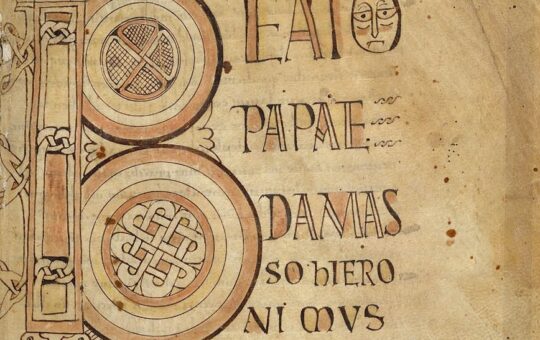 BEATO
PAPAE
DAMAS
SO hIERO
NIMVS